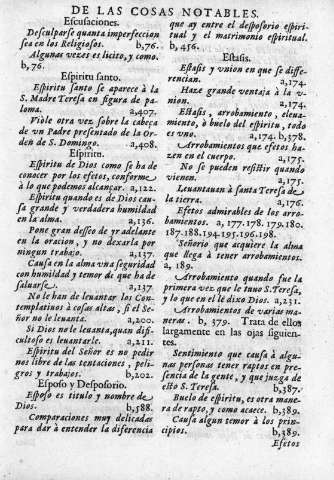 DE LAS COSAS NOTABLES.
Escusaciones.
Desculparse quanta imperfeccion
sea en los Religiosos. b,76.
Algunas vezes es licito, y como.
b, 76.
Espiritu santo.
Espiritu santo se aparece à la
S. Madre Teresa en figura de pa-
loma. a,407.
Viòle otra vez sobre la cabeça
de vn Padre presentado de la Or-
den de S. Domingo. a,408.
Espiritu.
Espiritu de Dios como se ha de
conocer por los efetos, conforme
à lo que podemos alcançar. a,122.
Espiritu quando es de Dios cau-
sa grande y verdadera humildad
en la alma. a,136.
Pone gran desseo de yr adelante
en la oracion, y no dexarla por
ningun trabajo. a,137.
Causa en la alma vna seguridad
con humildad y temor de que ha de
saluarse. a,137.
No le han de leuantar los Con-
templatinos à cosas altas, si el Se-
ñor no le leuanta. a,200.
Si Dios no le leuanta, quan difi-
cultoso es leuantarle. a,211.
Espiritu del Señor es no pedir
nos libre de las tentaciones, peli-
gros y trabajos. b,202.
Esposo y Desposorio.
Esposo es titulo y nombre de
Dios. b,588.
Comparaciones muy delicadas
para dàr à entender la diferencia
que ay entre el desposorio espiri-
tual y el matrimonio espiritual.
b, 456.
Estasis.
Estasis y vnion en que se dife-
rencian. a,174.
Haze grande ventaja à la v-
nion. a,174.
Estasis, arrobamiento, eleua-
miento, ò buelo del espiritu, todo
es vno. a,174. b,378.
Arrobamientos que efetos ha-
zen en el cuerpo. a,175.
No se pueden resistir quando
vienen. a,175.
Leuantauan à santa Teresa de
la tierra. a,176.
Efetos admirables de los arro-
bamientos. a, 177.178.179.180.
187.188.194.195.196.198.
Señorio que adquiere la alma
que llega à tener arrobamientos.
a, 189.
Arrobamiento quando fue la
primera vez que le tuuo S. Teresa,
y lo que en el lê dixo Dios. a,231.
Arrobamientos de varias ma-
neras. b, 379. Trata de ellos
largamente en las ojas siguien-
tes.
Sentimiento que causa à algu-
nas personas tener raptos en pre-
sencia de la gente, y que juzga de
esso S. Teresa. b,387.
Buelo de espiritu, es otra mane-
ra de rapto, y como acaece. b,389.
Causa algun temor à los prin-
cipios. b,389.
Efetos